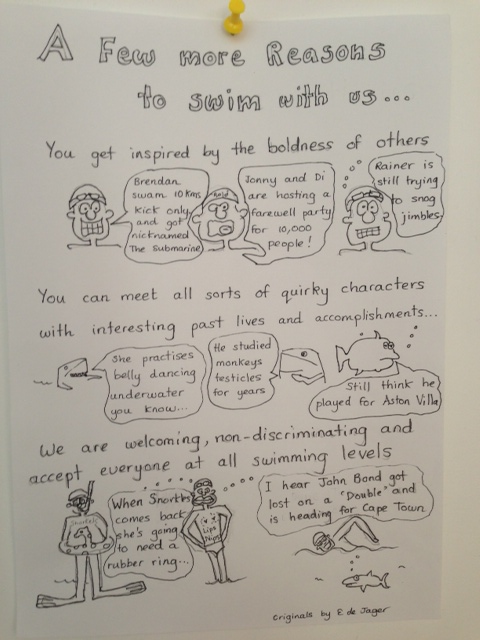 A Few more Reasons
to swim with us...
You get inspired by the boldness of others
Brendan
swam 10kms
kick only
and got
nicknamed
The Submarine
Jonny and Di
are hosting a
farewell party
for 10,000
people!
Rainer is
still trying
to snog
jimbles
You can meet all sorts of quirky characters
with interesting past lives and accomplishments...
She practises
belly dancing
underwater
you know...
He studied
monkeys
testicles
for years
Still think he
played for Aston Villa
We are welcoming, non-discriminating and
accept everyone at all swimming levels
When Snorkts
comes back
she's going
to need a
rubber ring...
I hear John Bond got
lost on a "Double" and
is heading for Cape Town
Originals by E de Jager